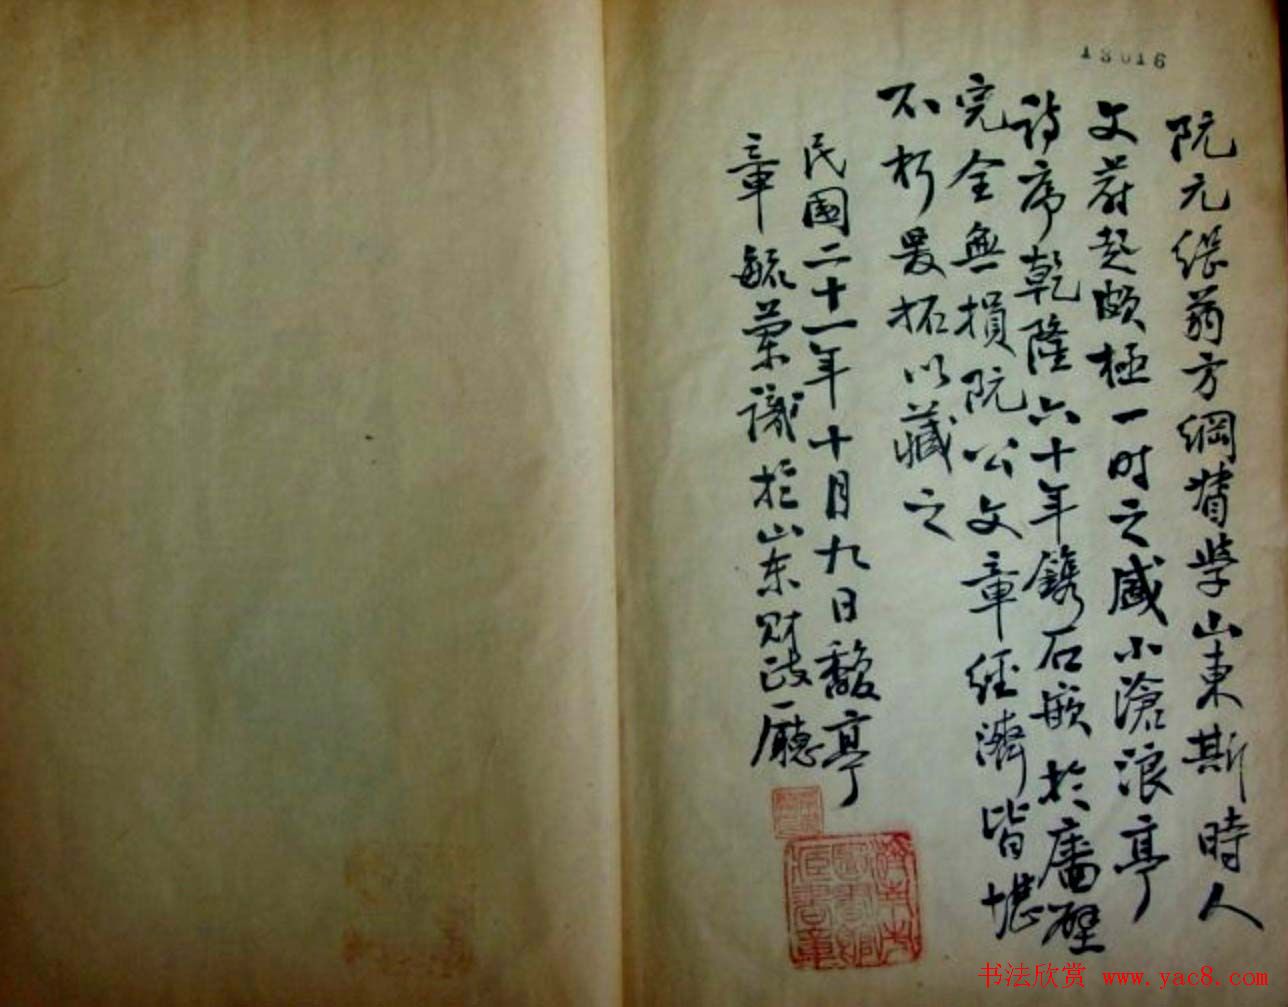 13016
阮元继翁方綱督学山東斯時人
文蔚起頗極一时之盛小滄浪亭
詩序乾隆六十年鐫石嵌於廧壁
完全無損阮公文章經濟皆堪
不朽爰拓以藏之
民國二十一年十月九日馥亭
章毓蘭識於山东财政廳
濟南市
圖書館
藏書章
书法欣赏 www.yac8.com